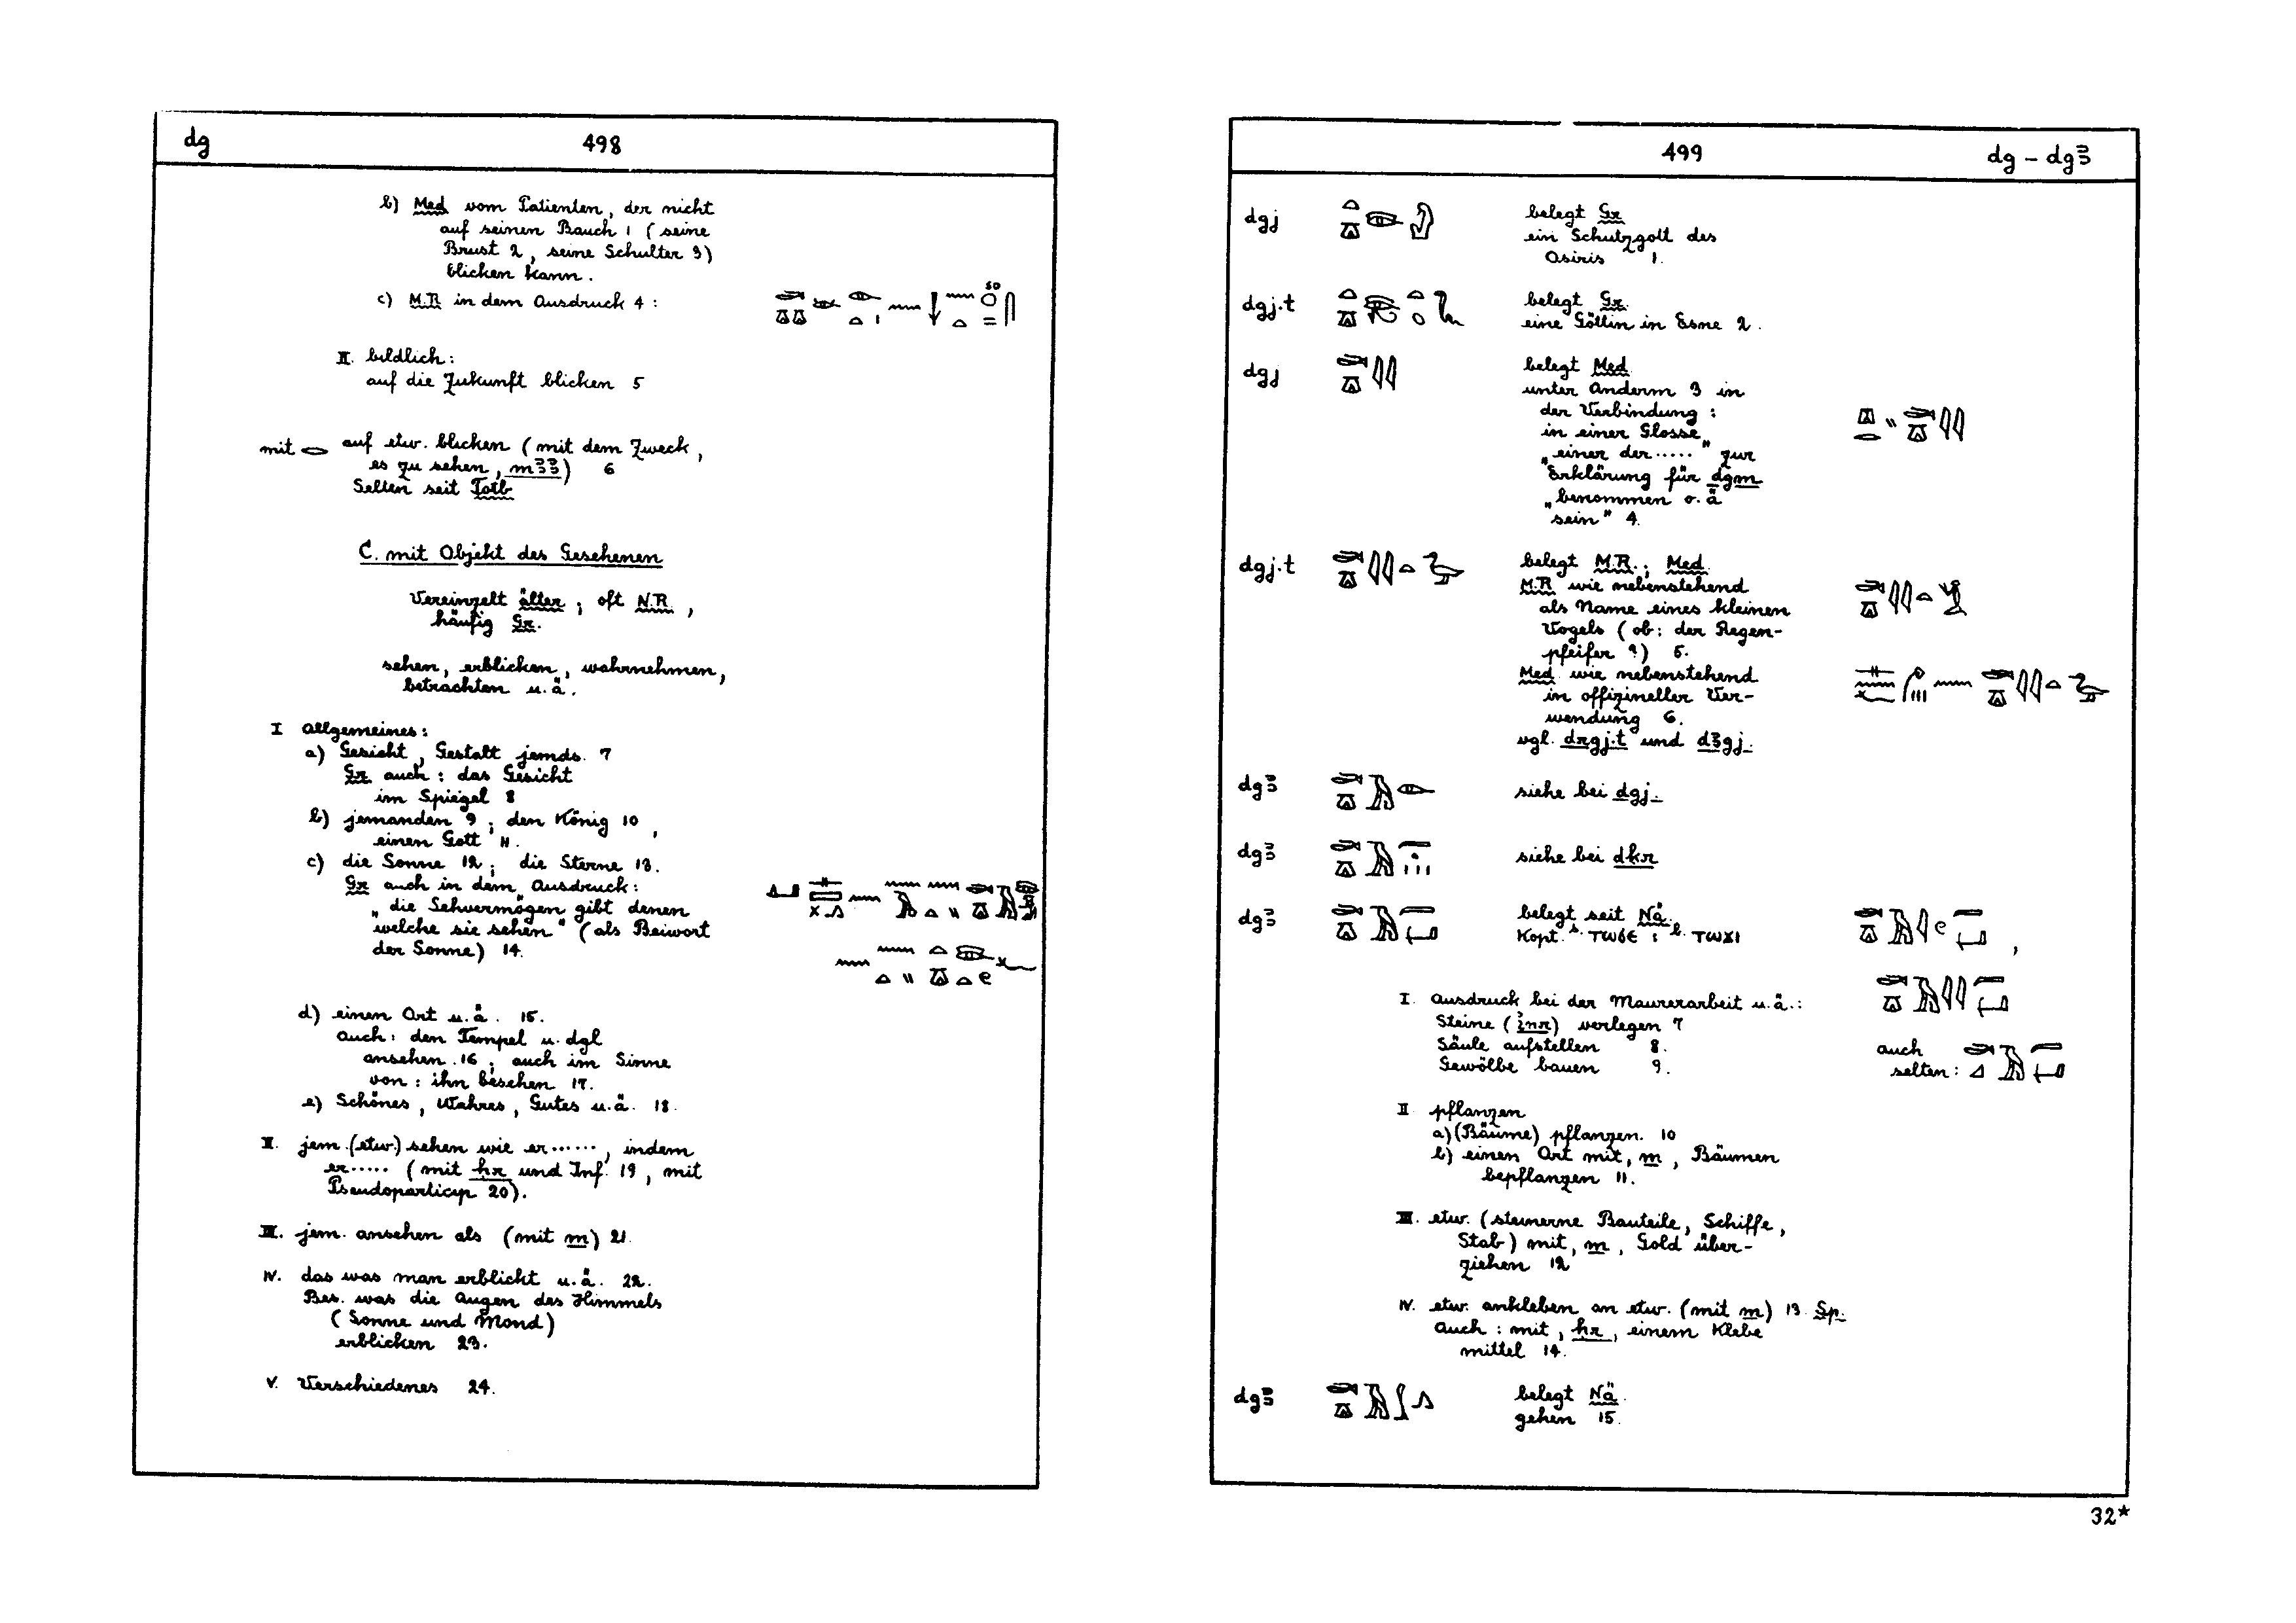 dg 498
b) Med vom Patienten, der nicht
auf seinen Bauch 1 (seine
Brust 2, seine Schulter 3)
blicken kann.
c) M.R in dem Ausdruck 4:
II. bildlich:
auf die Zukunft blicken 5
mit 𓂋 auf etw. blicken (mit dem Zweck,
es zu sehen, mꜣꜣ) 6
Selten seit Totb
C. mit Objekt des Gesehenen
Vereinzelt älter; oft N.R,
häufig Gr.
sehen, erblicken, wahrnehmen,
betrachten u.ä.
I allgemeines:
a) Gesicht, Gestalt jemds. 7
Gr auch: das Gesicht
im Spiegel 8
b) jemanden 9; den König 10,
einen Gott 11.
c) die Sonne 12; die Sterne 13.
Gr auch in dem Ausdruck:
„die Sehvermögen gibt denen
welche sie sehen" (als Beiwort
der Sonne) 14.
d) einen Ort u.ä. 15.
auch: den Tempel u. dgl
ansehen 16; auch im Sinne
von: ihn besehen 17.
e) Schönes, Wahres, Gutes u.ä. 18.
II. jem. (etw.) sehen wie er......, indem
er..... (mit ḥr und Inf. 19, mit
Pseudoparticip 20).
III. jem. ansehen als (mit m) 21.
IV. das was man erblickt u.ä. 22.
Bes. was die Augen des Himmels
(Sonne und Mond)
erblicken 23.
V. Verschiedenes 24.
499 dg – dgꜣ
dgj belegt Gr
ein Schutzgott des
Osiris 1.
dgj.t belegt Gr.
eine Göttin in Esne 2.
dgj belegt Med
unter Anderm 3 in
der Verbindung:
in einer Glosse
„einer der ....." zur
Erklärung für dgm
„benommen o.ä
sein" 4.
dgj.t belegt M.R.; Med.
M.R wie nebenstehend
als Name eines kleinen
Vogels (ob: der Regen-
pfeifer?) 5.
Med wie nebenstehend
in offizineller Ver-
wendung 6.
vgl. drgj.t und dꜣgj.
dgꜣ siehe bei dgj.
dgꜣ siehe bei dkr
dgꜣ belegt seit Nä.
Kopt. s. ⲧⲱϭⲉ; b. ⲧⲱϫⲓ
I. Ausdruck bei der Maurerarbeit u.ä.:
Steine (inr) verlegen 7
Säule aufstellen 8.
Gewölbe bauen 9.
auch
selten:
II pflanzen
a) (Bäume) pflanzen. 10
b) einen Ort mit, m, Bäumen
bepflanzen 11.
III. etw. (steinerne Bauteile, Schiffe,
Stab) mit, m, Gold über-
ziehen 12
IV. etw. ankleben an etw. (mit m) 13 Sp.
Auch: mit, ḥr, einem Klebe
mittel 14.
dgꜣ belegt Nä.
gehen 15.
32*